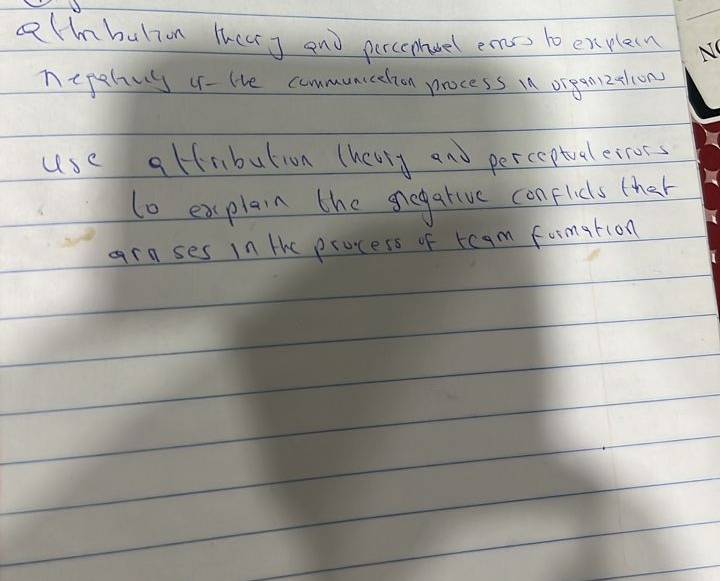 attribution theory and perceptual errors to explain
negativity in the communication process in organizations
use attribution theory and perceptual errors
to explain the negative conflicts that
arises in the process of team formation
NO